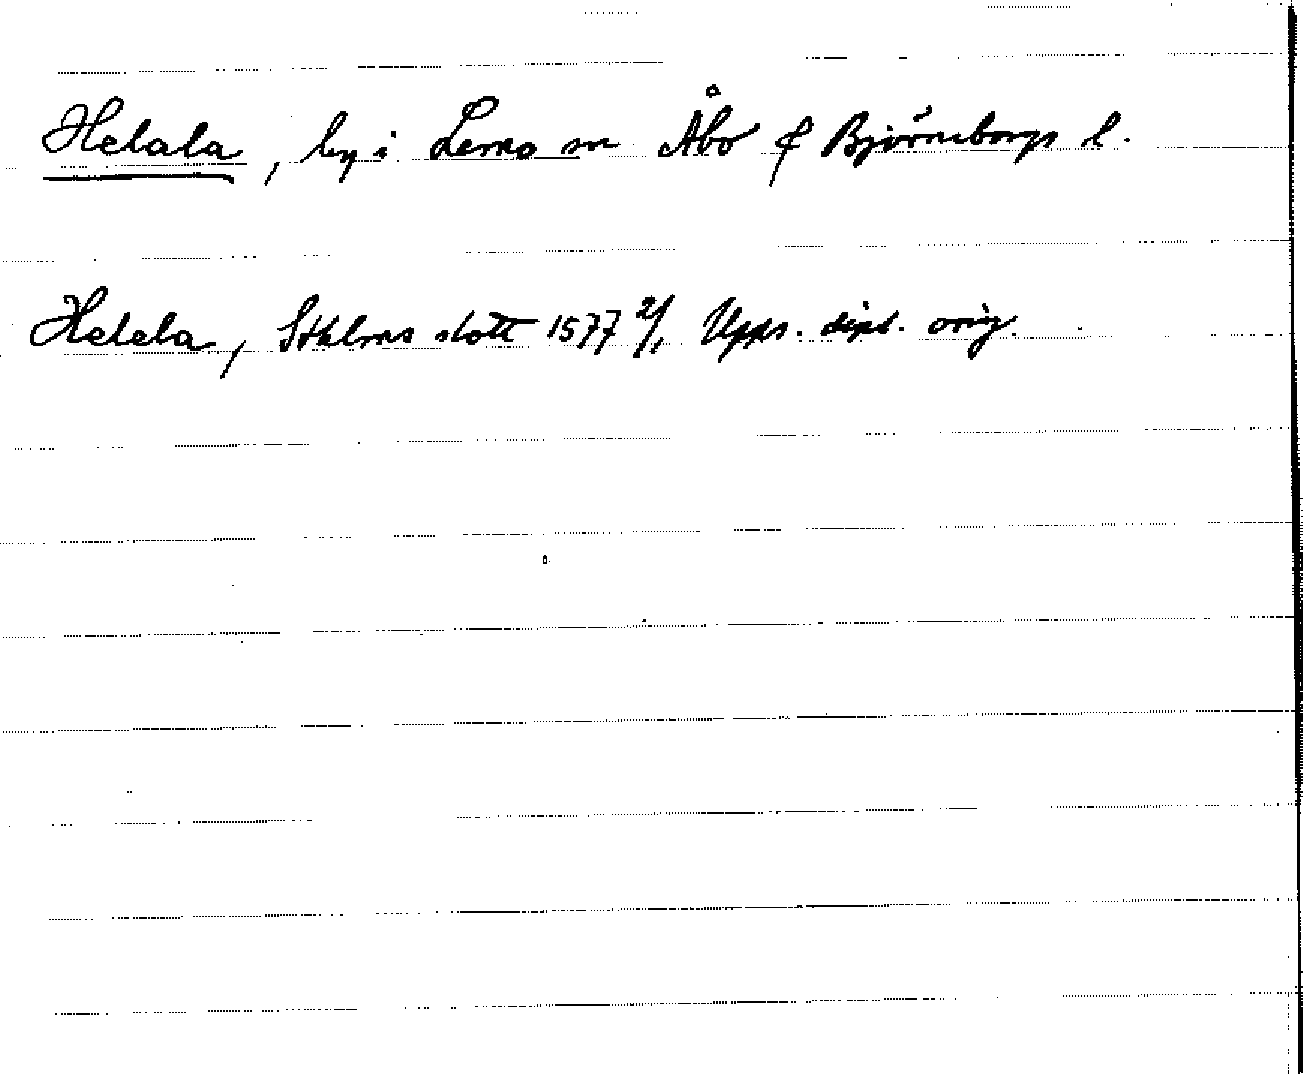 Helala, by i Lemo sn Åbo & Björneborgs l.
Helela, Sthlms slott 1577 2/1 Upps. dipl. orig.